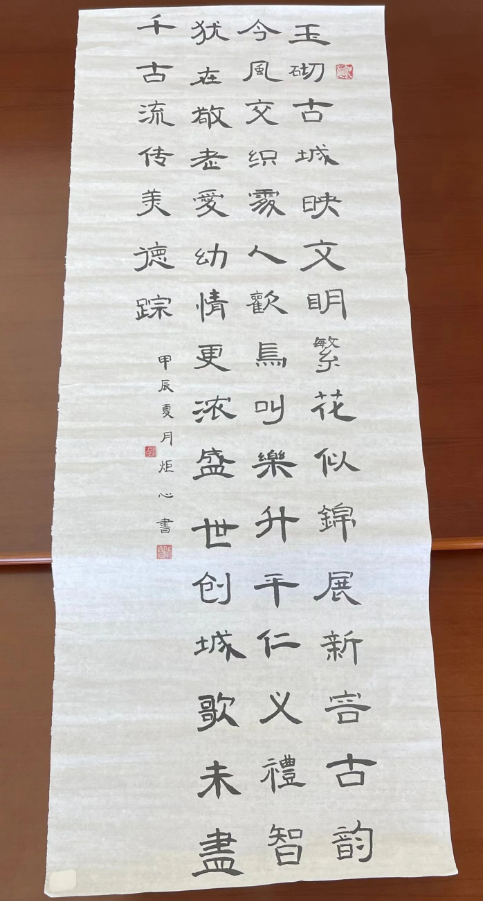 玉砌古城映文明繁花似錦展新容古韵
今風交织處人歡鳥叫樂升平仁义禮智
犹在敬老愛幼情更浓盛世创城歌未盡
千古流传美德踪
甲辰夏月炬心書